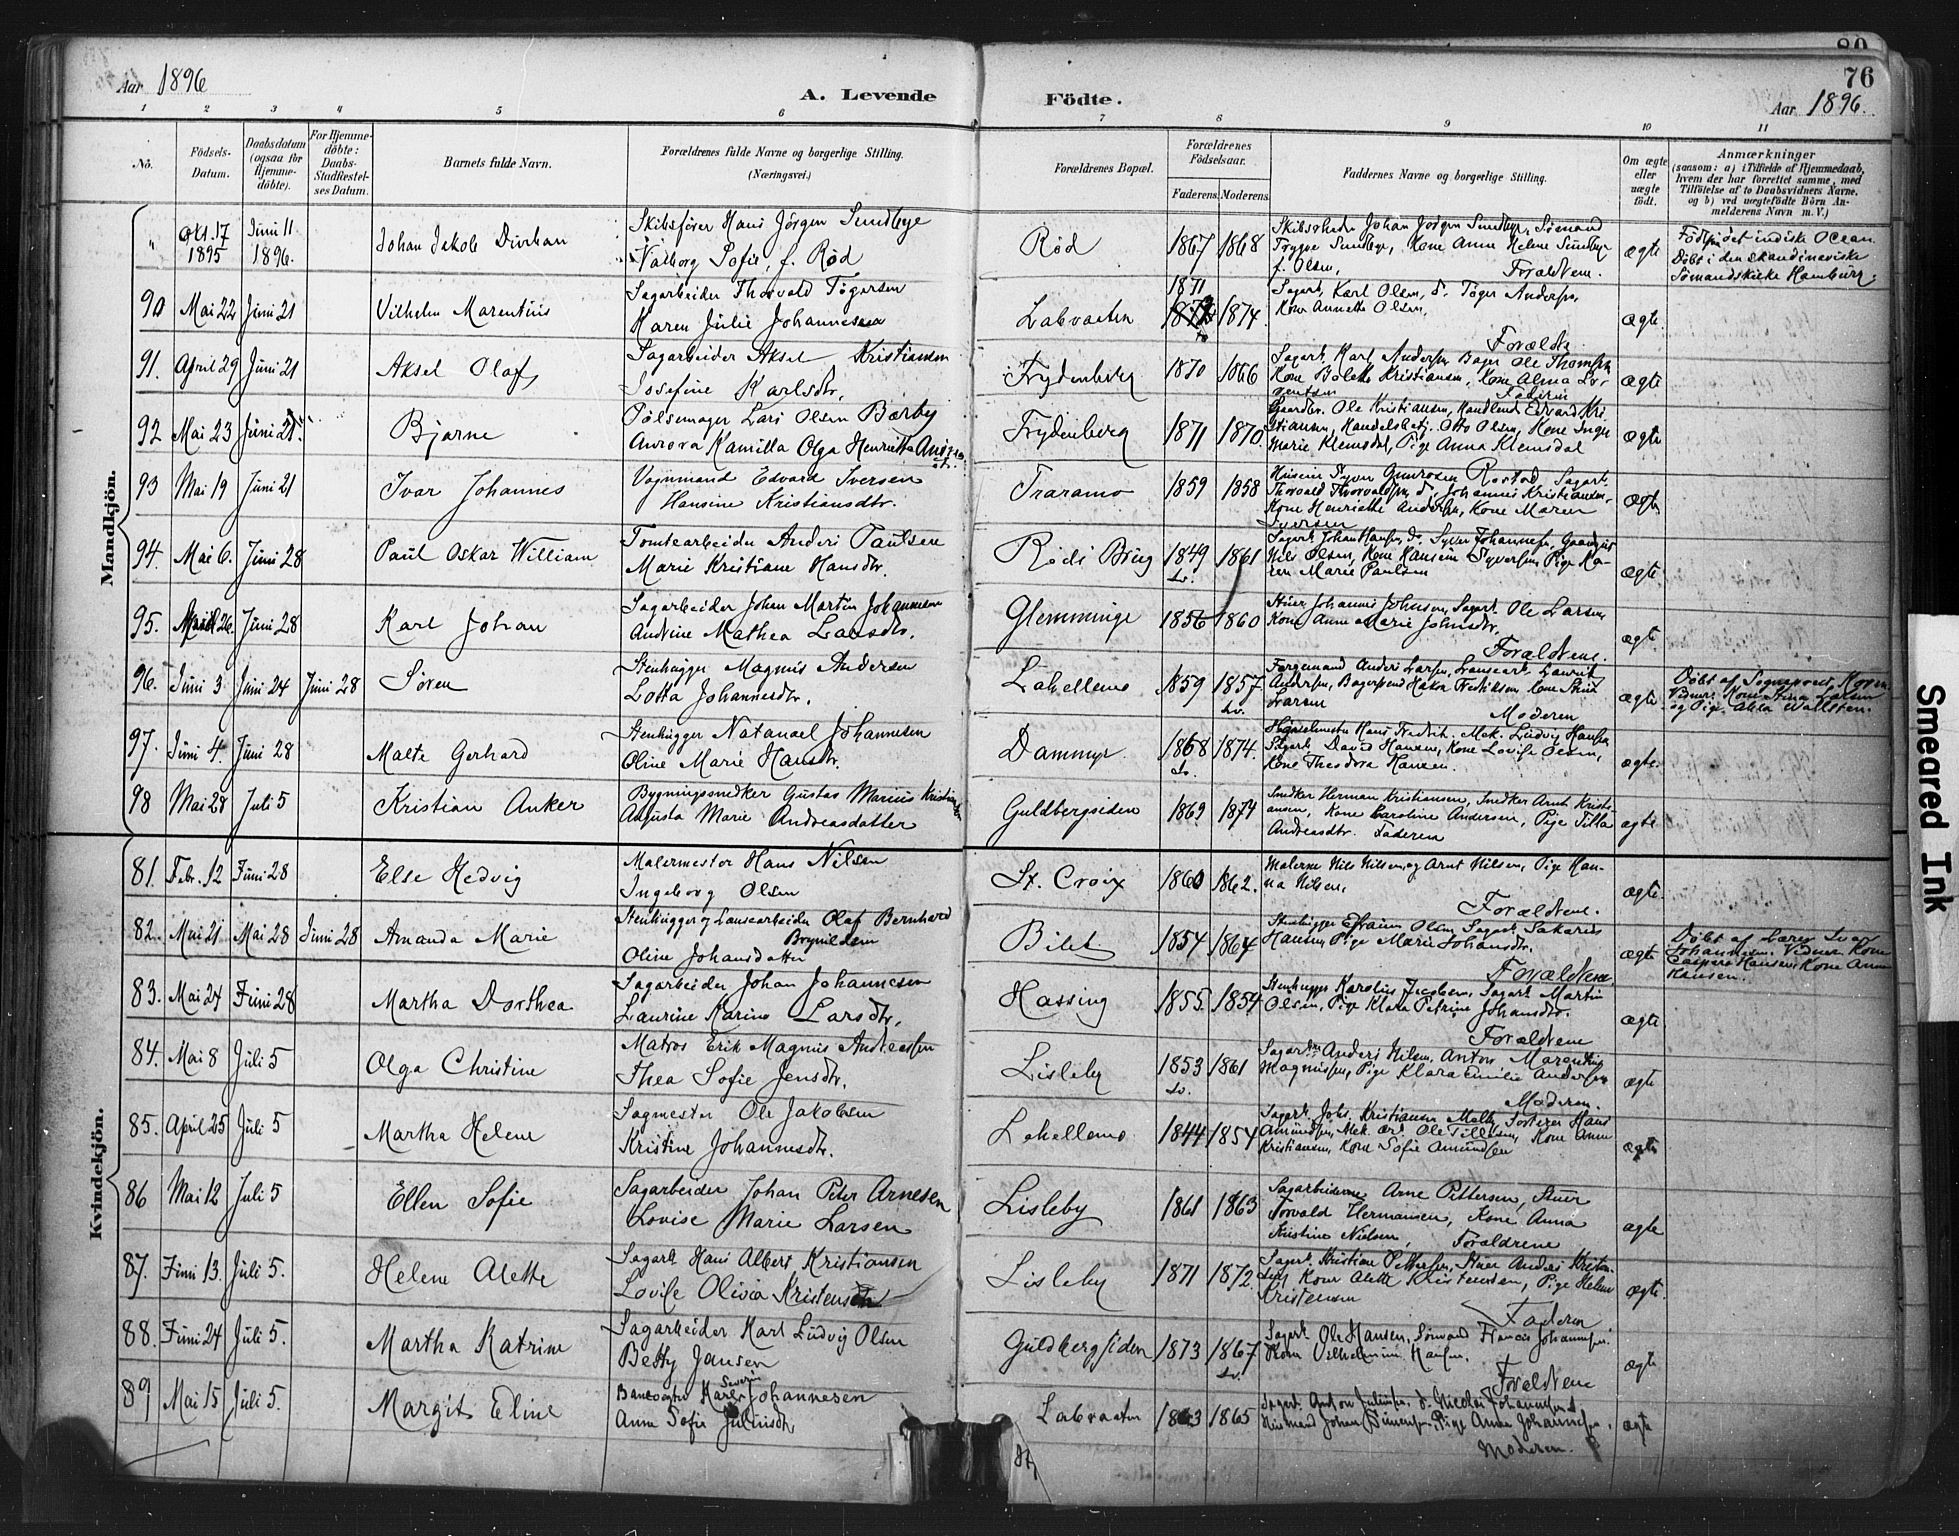 80
76
Aar 1896
A. Levende
Födte.
Aar 1896.
1 2 3 4 5 6 7 8 9 10 11
No.
Födsels-Datum.
Daabsdatum (ogsaa for Hjemmedöbte).
For Hjemmedöbte: Daabs-Stadfæstelses Datum.
Barnets fulde Navn.
Forældrenes fulde Navne og borgerlige Stilling.
(Næringsvei.)
Forældrenes Bopæl.
Forældrenes Födselsaar.
Faderens. Moderens.
Faddernes Navne og borgerlige Stilling.
Om ægte eller uægte födt.
Anmærkninger
(saasom: a) i Tilfælde af Hjemmedaab, hvem der har forrettet samme, med Tilföielse af to Daabsvidners Navne. og b) ved uægtefödte Börn Anmelderens Navn m. V.)
Mandkjön.
" Okt. 17 1895 Juni 11 1896. Johan Jakob Durban
Skibsfører Hans Jørgen Sundbye
Valborg Sofie, f. Rød
Rød 1867 1868
Skibsreder Johan Jørgen Sundbye, Sømand
Trygve Sundbye, Kone Anne Helene Sundbye
f. Olsen, Forældrene.
ægte
Født på det indiske Ocean.
Døbt i den skandinaviske
Sømandskirke Hamburg.
90 Mai 22 Juni 21 Vilhelm Marentius
Sagarbeider Thorvald Tøgersen
Karen Julie Johannesen
Labraaten 1871 1874.
Sagarb. Karl Olsen, d. Tøger Andersen,
Kone Annette Olsen,
Forældr.
ægte.
91. April 29 Juni 21 Aksel Olaf
Sagarbeider Aksel Kristiansen
Josefine Karlsdtr.
Frydenberg 1870 1866
Sagarb. Karl Andersen, Bager Ole Thomsen
Kone Bolette Kristiansen, Kone Alma
Faderen
ægte
92 Mai 23 Juni 21. Bjarne
Pølsemager Lars Olsen Bærby
Aurora Kamilla Olga Henriette
Frydenberg 1871 1870.
Gaardbr. Ole Kristiansen, Handlende Edvard Kri-
stiansen, Handelsbetj. Otto Olsen, Kone Inga
Marie Klemsdal, Pige Anna Klemsdal
ægte
93 Mai 19 Juni 21 Ivar Johannes
Vognmand Edvard Iversen
Hansine Kristiansdtr.
Traramo 1859 1858
Rostad Sagarb.
Thorvald Thorvaldsen, d. Johannes Kristiansen,
Kone Henriette Andersen, Kone Maren
Syversen
ægte
94. Mai 6. Juni 28 Paul Oskar William
Tomtearbeider Anders Paulsen
Marie Kristiane Hansdtr.
Røds Brug 1849 1861
Sagarb. Johan Hansen, d. Syver Johannesen,
Nils Olsen, Kone Hansine Syversen, Pige Ka-
ren Marie Paulsen
ægte
95. April 26. Juni 28 Karl Johan
Sagarbeider Johan Martin Johannesen
Andrine Mathea Larsdtr.
Glemminge 1856 1860
Stuer Johannes Johnsen, Sagarb. Ole Larsen,
Kone Anne Marie Johnsdtr.
Forældrene.
ægte
96. Juni 3 Juni 24 Juni 28 Søren
Stenhugger Magnus Andersen
Lotta Johannesdtr.
Lahellemo 1859 1857
Færgemand Anders Larsen, Lansearb. Laurits
Andersen, Bagersvend Hakon Fredriksen, Kone Stina
Larsen
Moderen
ægte
Døbt af Sognepræst
Vidner: Kone Anna Larsen
og Pige Alida Wallsten.
97. Juni 4. Juni 28 Malte Gerhard
Stenhugger Natanael Johannesen
Oline Marie Hansdtr.
Dammyr 1868 1874.
Hans Fredrik. Mek. Ludvig Hansen,
Sagarb. David Hansen, Kone Lovise Olsen,
Kone Theodora Hansen.
ægte.
98 Mai 28 Juli 5 Kristian Anker
Bygningssnedker Gustav Marius Kristiansen
Augusta Marie Andreasdatter
Guldbergsiden 1869 1874
Snedker Herman Kristiansen, Snedker Arnt Kristi-
ansen, Kone Caroline Andersen, Pige Tilla
Andreasdtr. Faderen
ægte
Kvindekjön.
81. Febr. 12 Juni 28 Else Hedvig
Malermester Hans Nilsen
Ingeborg Olsen
St. Croix 1860 1862.
Malerne Nils Nilsen, og Arnt Nilsen, Pige Han-
na Nilsen,
Forældrene.
ægte.
82. Mai 21 Mai 28 Juni 28 Amanda Marie
Stenhugger og Lansearbeider Olaf Bernhard
Brynildsen
Oline Johansdatter
Bilet 1854 1864
Stenhugger Efraim Olsen, Sagarb. Sakarias
Hansen, Pige Marie Johansdtr.
Forældrene.
ægte
Døbt af Lærer Ivar
Johannesen. Vidner Kone
Caspara Hansen, Kone Anne
Hansen.
83. Mai 24 Juni 28 Martha Dorthea
Sagarbeider Johan Johannesen
Laurine Karine Larsdtr.
Hassing 1855 1854
Stenhugger Karolius Jacobsen, Sagarb. Martin
Olsen, Pige Klara Petrine Johansdtr.
Forældrene
ægte.
84. Mai 8 Juli 5 Olga Christine
Matros Erik Magnus Andreassen
Thea Sofie Jensdtr.
Lisleby 1853 1861
Sagarb. Anders Nilsen, Anton Marentius
Magnussen, Pige Klara Emilie Andersen
Moderen.
ægte
85. April 25 Juli 5 Martha Helene
Sagmester Ole Jakobsen
Kristine Johannesdtr.
Lahellemo 1844 1854
Sagarb. Johs. Kristiansen Melby, Sorterer Hans
Amundsen, Mek. arb. Ole Tillesen, Kone Anne
Kristiansen, Kone Sofie Amundsen
ægte
86 Mai 12 Juli 5 Ellen Sofie
Sagarbeider Johan Peter Arnesen
Lovise Marie Larsen
Lisleby 1861 1863
Sagarbeiderne Arne Pettersen, Stuer
Torvald Hermansen, Kone Anna
Kristine Nielsen, Forældrene
ægte
87. Juni 13. Juli 5. Helene Alette
Sagarb. Hans Albert Kristiansen
Lovise Olivia Kristensdtr
Lisleby 1871 1872.
Sagarb. Kristian Pettersen, Stuer Anders Kristian-
sen, Kone Alette Kristensen, Pige Helene
Kristensen
Faderen
ægte.
88. Juni 24 Juli 5. Martha Katrine
Sagarbeider Karl Ludvig Olsen
Betty Jansen
Guldbergsiden 1873 1867
Sagarb. Ole Hansen, Sømand Francis Johannesen,
Kone Vilhelmine Hansen.
Forældrene
ægte
89 Mai 15 Juli 5. Margit Eline
Banevogter Karl Severin Johannesen
Anne Sofie Juliusdtr
Labraaten 1863 1865
Sagarb. Anton Juliussen, d. Nicolai Johannesen,
Johan Simensen, Pige Anna Johannesen,
Moderen.
ægte
Smeared Ink